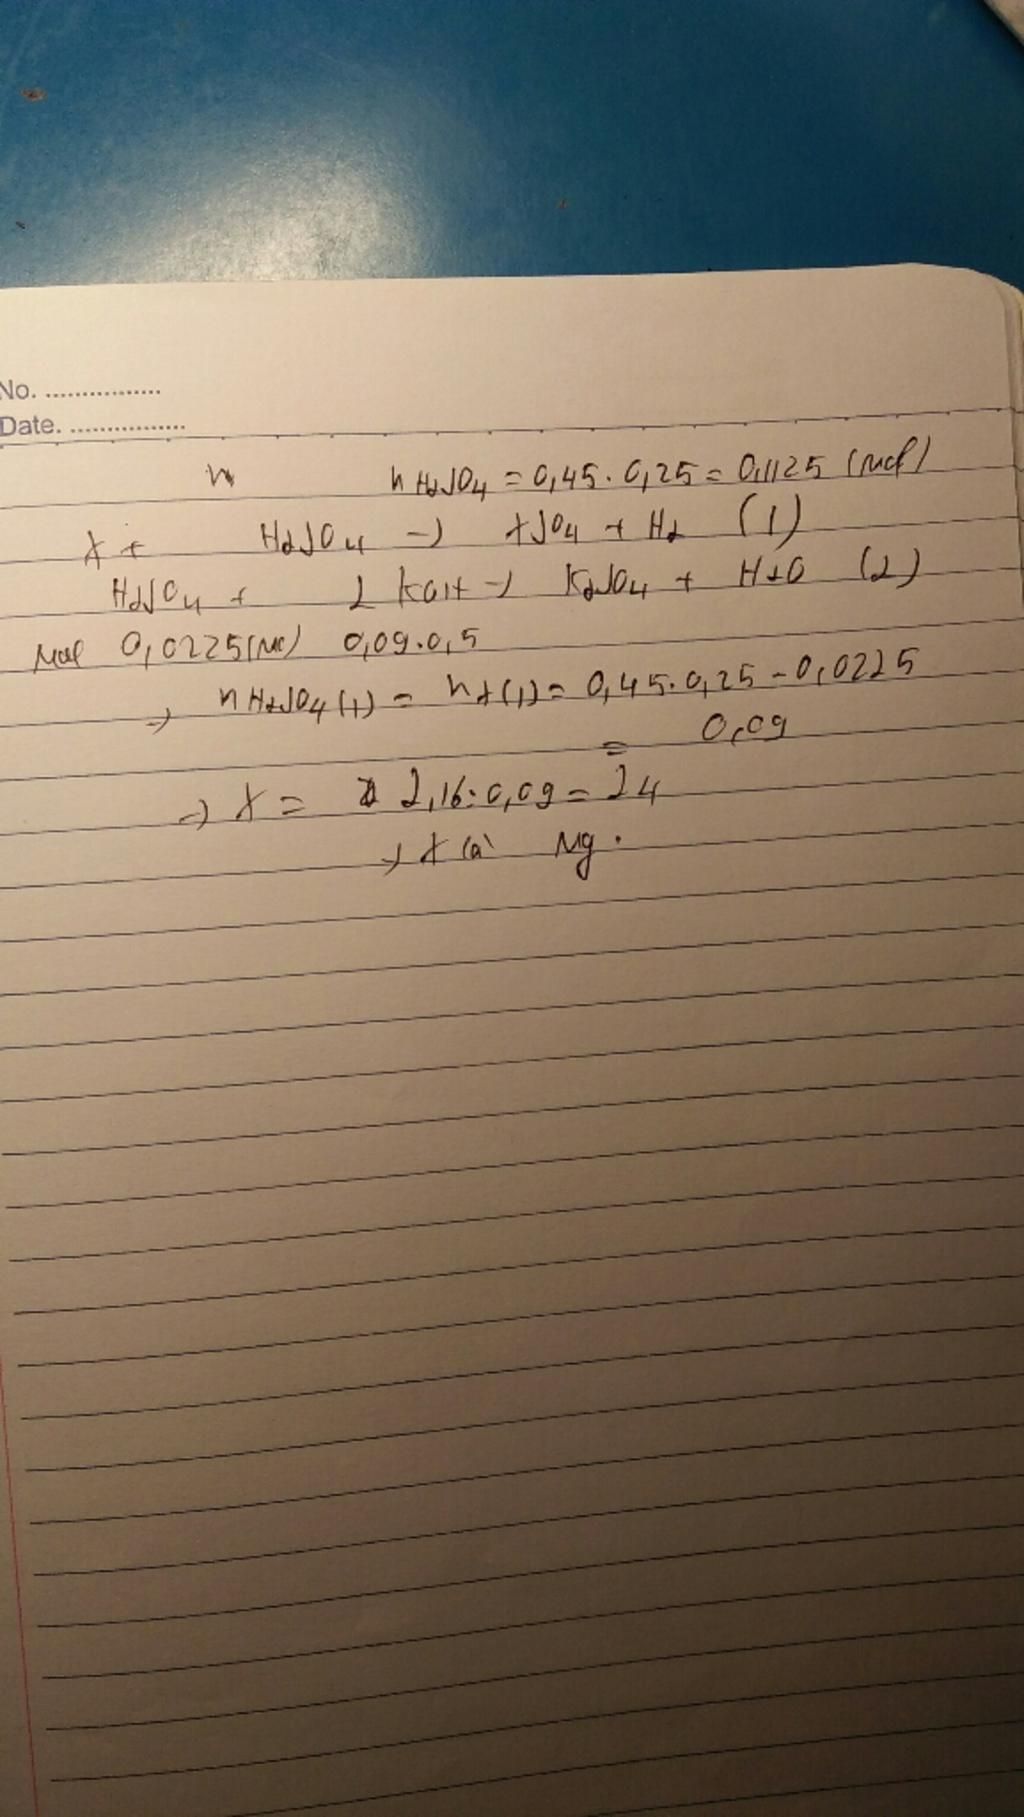 No. ................
Date. ................
n nH2SO4 = 0,45 . 0,25 = 0,1125 (mol)
X + H2SO4 → XSO4 + H2 (1)
H2SO4 + 2 KOH → K2SO4 + H2O (2)
Mol 0,0225(M) 0,09.0,5
→ nH2SO4 (1) = nX(1) = 0,45.0,25 - 0,0225
= 0,09
→ X = 2,16:0,09 = 24
→ X là Mg.